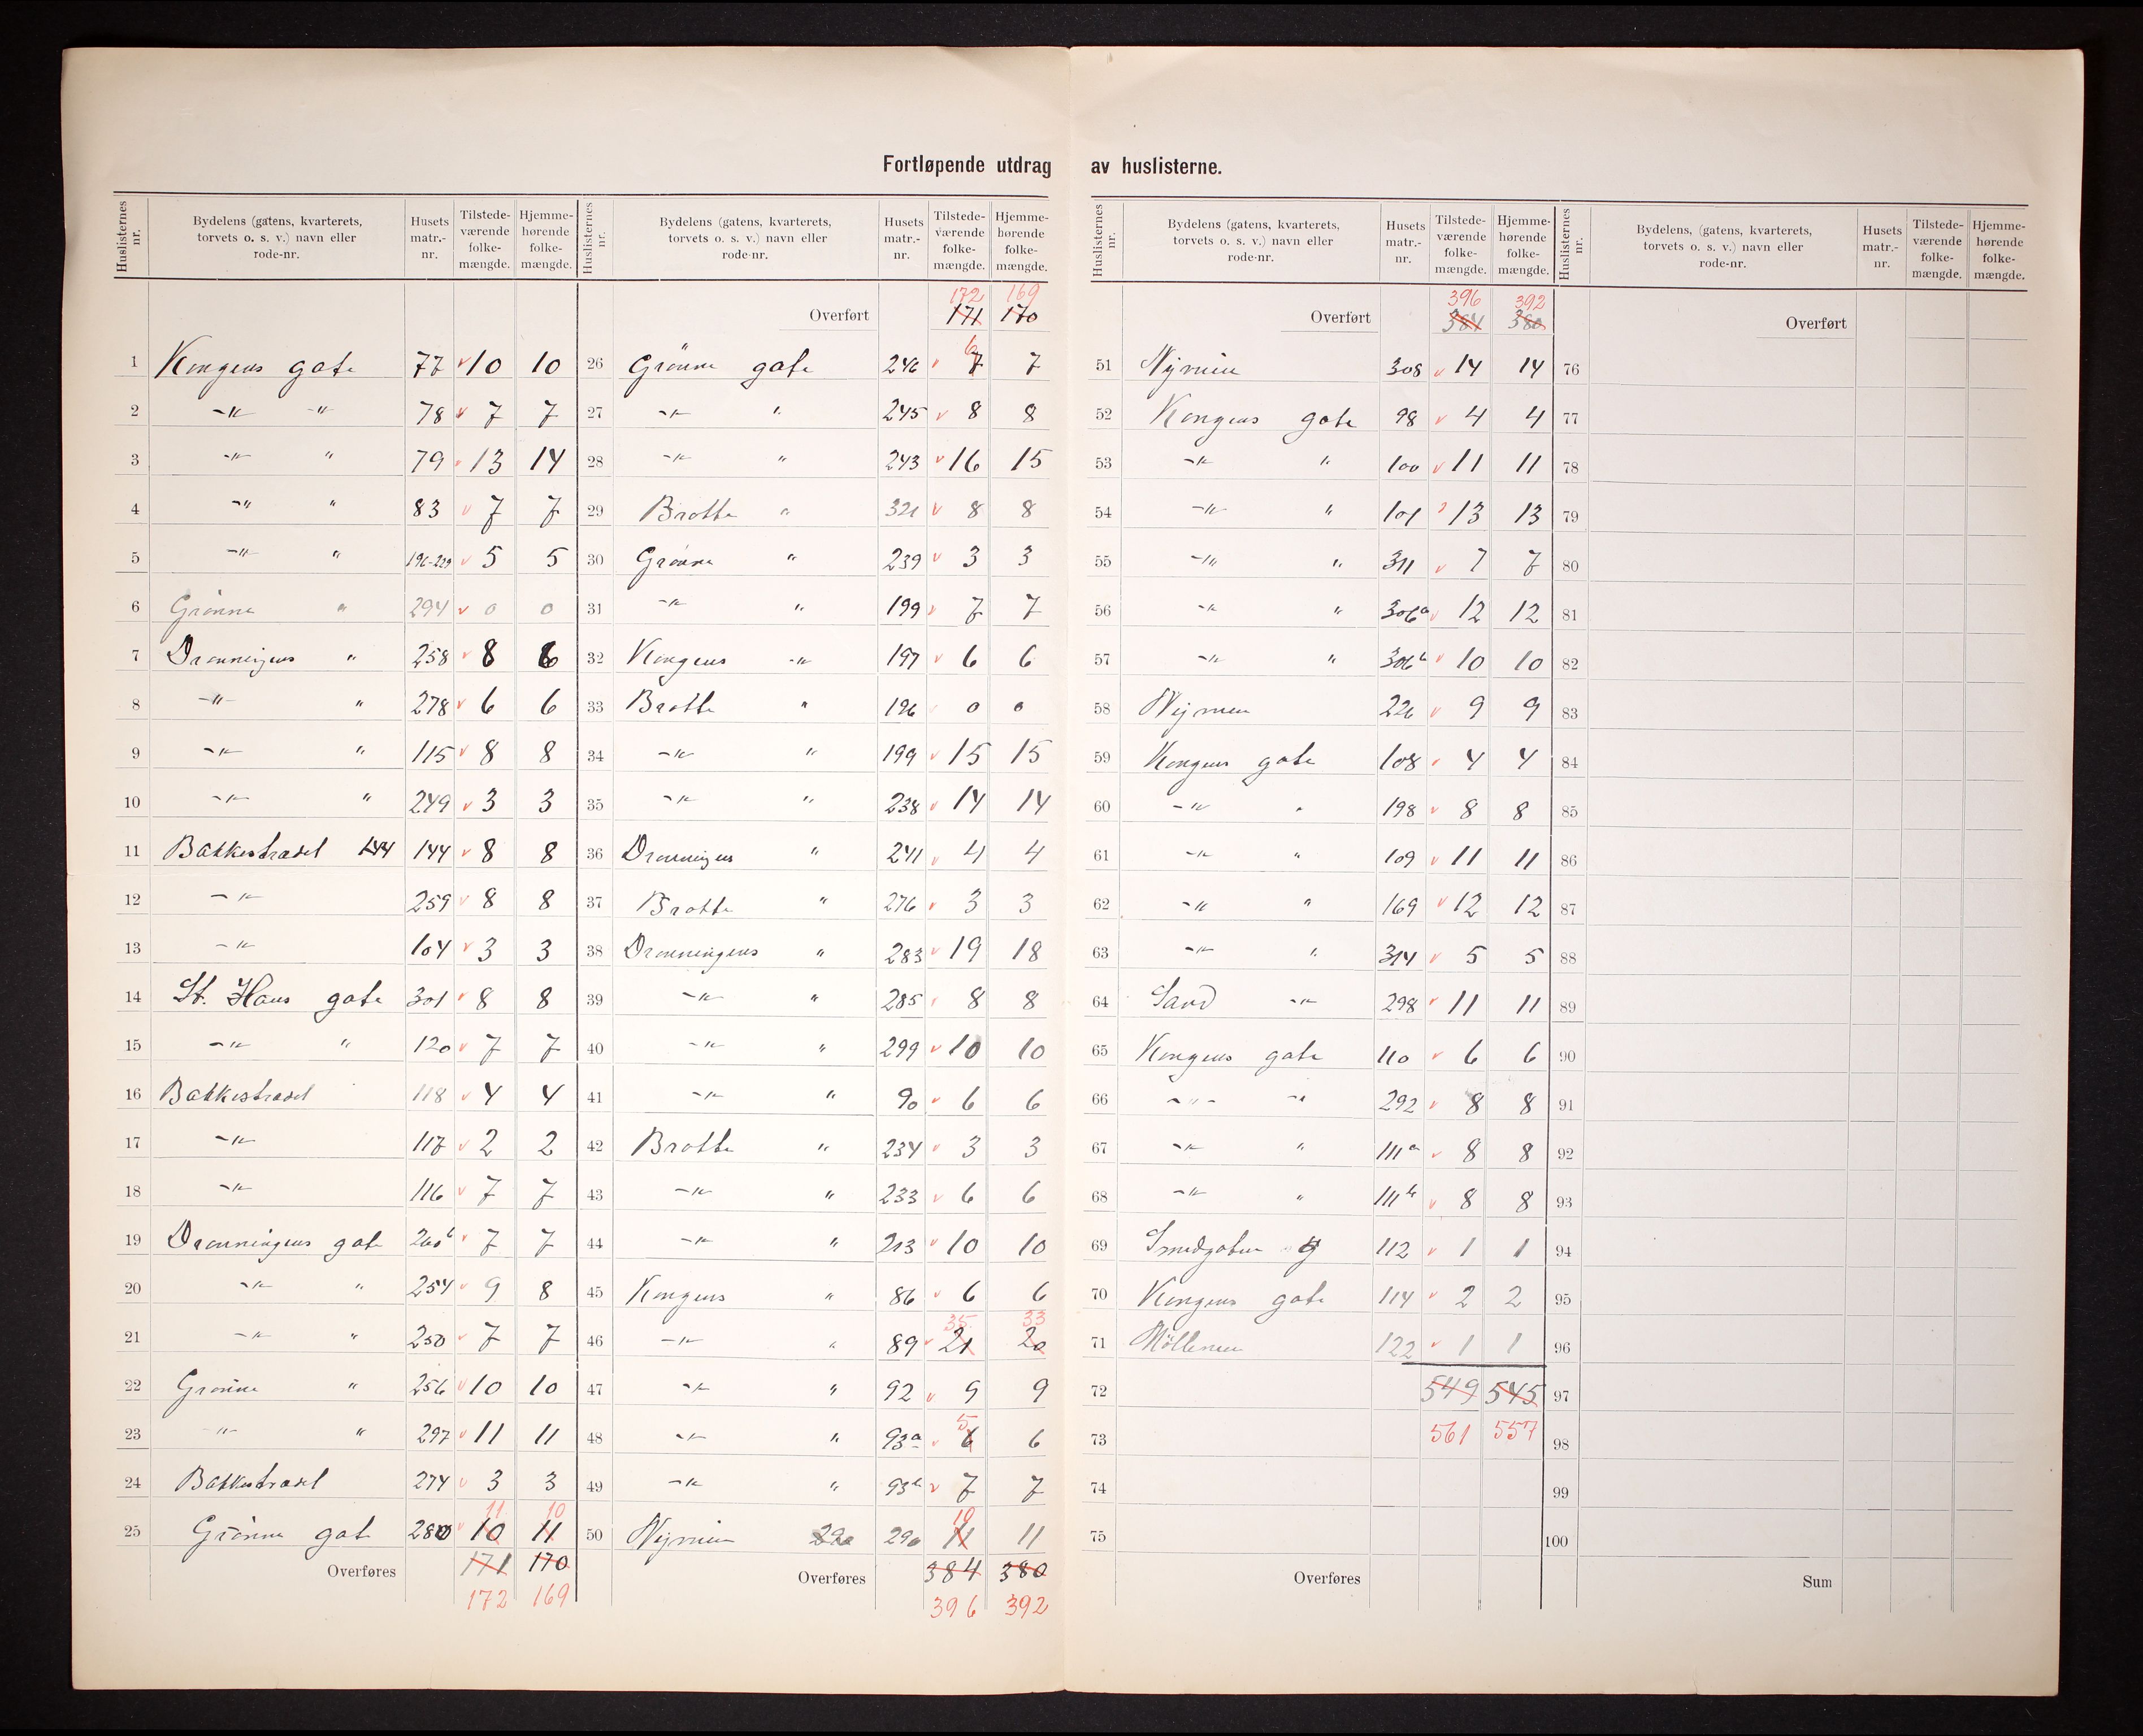 Fortløpende utdrag av huslisterne.
Huslisternes nr. | Bydelens (gatens, kvarterets, torvets o. s. v.) navn eller rode-nr. | Husets matr.-nr. | Tilstede-værende folke-mængde. | Hjemme-hørende folke-mængde.
1 Kongens gate 77 v 10 10
2 -"- -"- 78 v 7 7
3 -"- " 79 v 13 14
4 -"- " 83 v 7 7
5 -"- " 196-229 v 5 5
6 Grønne " 294 v 0 0
7 Dronningens " 258 v 8 6
8 -"- " 278 v 6 6
9 -"- " 115 v 8 8
10 -"- " 249 v 3 3
11 Bakkestrædet 144 144 v 8 8
12 -"- 259 v 8 8
13 -"- 104 v 3 3
14 St. Hans gate 301 v 8 8
15 -"- " 120 v 7 7
16 Bakkestrædet 118 v 4 4
17 -"- 117 v 2 2
18 -"- 116 v 7 7
19 Dronningens gate 260b v 7 7
20 -"- " 254 v 9 8
21 -"- " 250 v 7 7
22 Grønne " 256 v 10 10
23 -"- " 297 v 11 11
24 Bakkestrædet 274 v 3 3
11 10
25 Grønne gat 280 v 10 11
Overføres 171 170
172 169
Huslisternes nr. | Bydelens (gatens, kvarterets, torvets o. s. v.) navn eller rode-nr. | Husets matr.-nr. | Tilstede-værende folke-mængde. | Hjemme-hørende folke-mængde.
172 169
Overført 171 170
6
26 Grønne gate 246 v 7 7
27 -"- " 245 v 8 8
28 -"- " 243 v 16 15
29 Bratte " 321 v 8 8
30 Grønne " 239 v 3 3
31 -"- " 199 v 7 7
32 Kongens -"- 197 v 6 6
33 Bratte " 196 v 0 0
34 -"- " 199 v 15 15
35 -"- " 238 v 14 14
36 Dronningens " 241 v 4 4
37 Bratte " 276 v 3 3
38 Dronningens " 283 v 19 18
39 -"- " 285 v 8 8
40 -"- " 299 v 10 10
41 -"- " 90 v 6 6
42 Bratte " 234 v 3 3
43 -"- " 233 v 6 6
44 -"- " 213 v 10 10
45 Kongens " 86 v 6 6
35 33
46 -"- " 89 v 21 20
47 -"- " 92 v 9 9
5
48 -"- " 93a v 6 6
49 -"- " 93b v 7 7
10
50 Nymien 290 290 11 11
Overføres 384 380
396 392
Huslisternes nr. | Bydelens (gatens, kvarterets, torvets o. s. v.) navn eller rode-nr. | Husets matr.-nr. | Tilstede-værende folke-mængde. | Hjemme-hørende folke-mængde.
396 392
Overført 384 380
51 Nymien 308 v 14 14
52 Kongens gate 98 v 4 4
53 -"- " 100 v 11 11
54 -"- " 101 v 13 13
55 -"- " 311 v 7 7
56 -"- " 306a v 12 12
57 -"- " 306b v 10 10
58 Nymien 226 v 9 9
59 Kongens gate 108 v 4 4
60 -"- " 198 v 8 8
61 -"- " 109 v 11 11
62 -"- " 169 v 12 12
63 -"- " 314 v 5 5
64 Sand -"- 298 v 11 11
65 Kongens gate 110 v 6 6
66 -"- -"- 292 v 8 8
67 -"- " 111a v 8 8
68 -"- " 111b v 8 8
69 Smedgaten 112 v 1 1
70 Kongens gate 114 v 2 2
71 Möllenen 122 v 1 1
72 549 545
73 561 557
74
75
Overføres
Huslisternes nr. | Bydelens, (gatens, kvarterets, torvets o. s. v.) navn eller rode-nr. | Husets matr.-nr. | Tilstede-værende folke-mængde. | Hjemme-hørende folke-mængde.
Overført
76
77
78
79
80
81
82
83
84
85
86
87
88
89
90
91
92
93
94
95
96
97
98
99
100
Sum